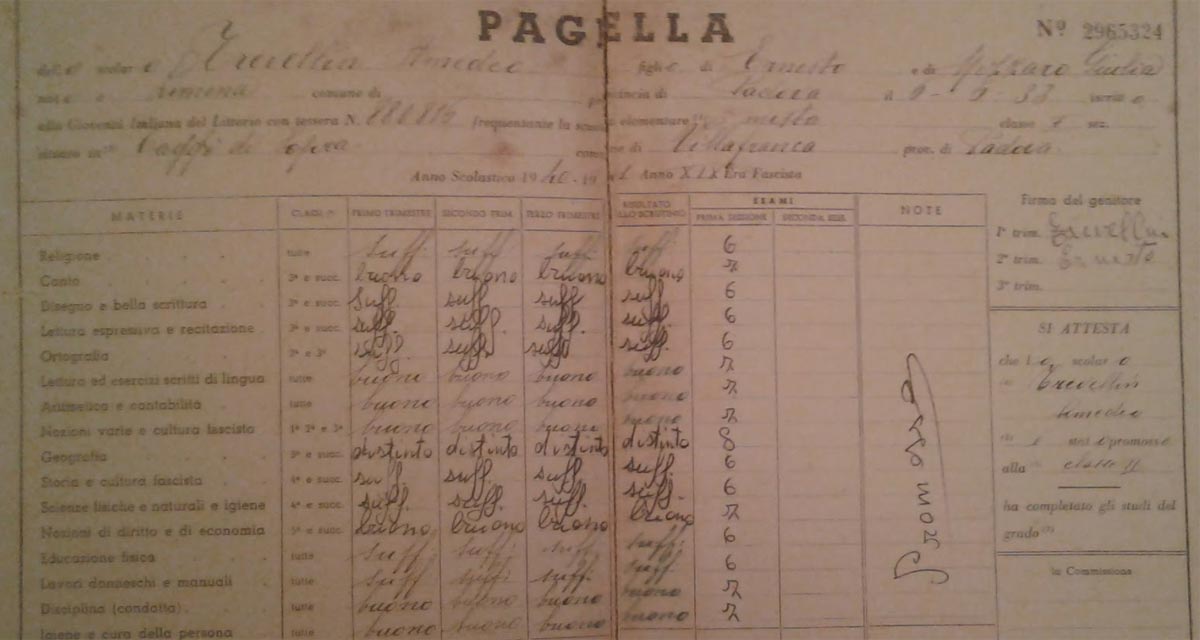 PAGELLA
Nº 2965324
dell o scolar o Trevellin Amedeo figlio di Ernesto e di Mozzaro Giulia
nat o a Limena comune di provincia di Padova il 9-9-33 iscritto
alla Gioventù Italiana del Littorio con tessera N. frequentante la scuola elementare mista classe I sez.
situata in di Sopra comune di Villafranca prov. di Padova
Anno Scolastico 1940-1941 Anno XIX Era Fascista
MATERIE CLASSI PRIMO TRIMESTRE SECONDO TRIM. TERZO TRIMESTRE RISULTATO DELLO SCRUTINIO ESAMI PRIMA SESSIONE SECONDA SESS. NOTE
Religione tutte suff. suff. suff. suff. 6
Canto 3ª e succ. buono buono buono buono 7
Disegno e bella scrittura 3ª e succ. suff. suff. suff. suff. 6
Lettura espressiva e recitazione 3ª e succ. suff. suff. suff. suff. 6
Ortografia 2ª e 3ª suff. suff. suff. suff. 6
Lettura ed esercizi scritti di lingua tutte buono buono buono buono 7
Aritmetica e contabilità tutte buono buono buono buono 7
Nozioni varie e cultura fascista 1ª 2ª e 3ª buono buono buono buono 7
Geografia 3ª e succ. distinto distinto distinto distinto 8
Storia e cultura fascista 4ª e succ. suff. suff. suff. suff. 6
Scienze fisiche e naturali e igiene 4ª e succ. suff. suff. suff. suff. 6
Nozioni di diritto e di economia 5ª e succ. buono buono buono buono 7
Educazione fisica tutte suff. suff. suff. suff. 6
Lavori donneschi e manuali tutte suff. suff. suff. suff. 6
Disciplina (condotta) tutte buono buono buono buono 7
Igiene e cura della persona tutte buono buono buono buono 7
Promosso
Firma del genitore
1º trim. Trevellin
2º trim. Ernesto
3º trim.
SI ATTESTA
che l o scolar o
Trevellin
Amedeo
è stat o promosso
alla classe II
ha completato gli studi del
grado
la Commissione